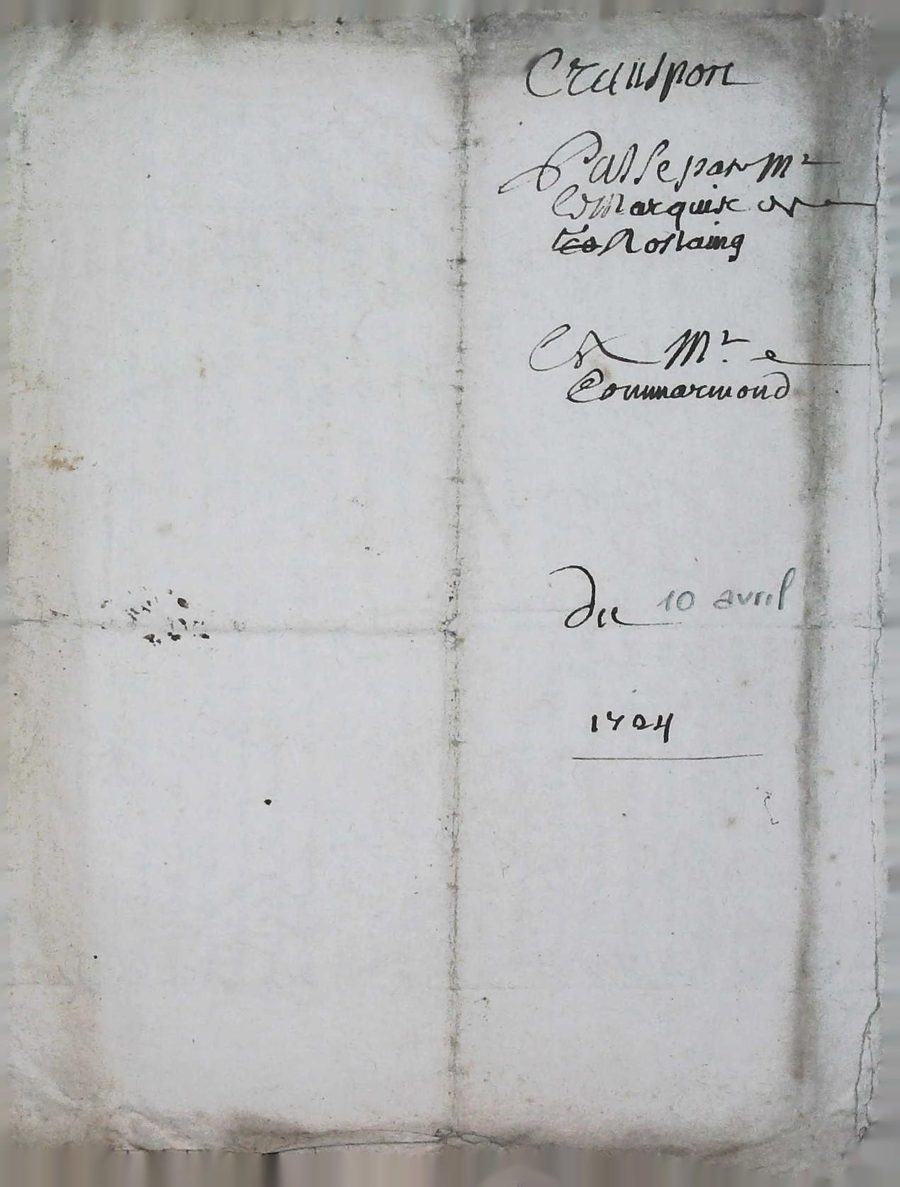 Transport
Passe par Mr
Le Marquis de
Rostaing
Et Mr
Commarmond
du 10 avril
1704